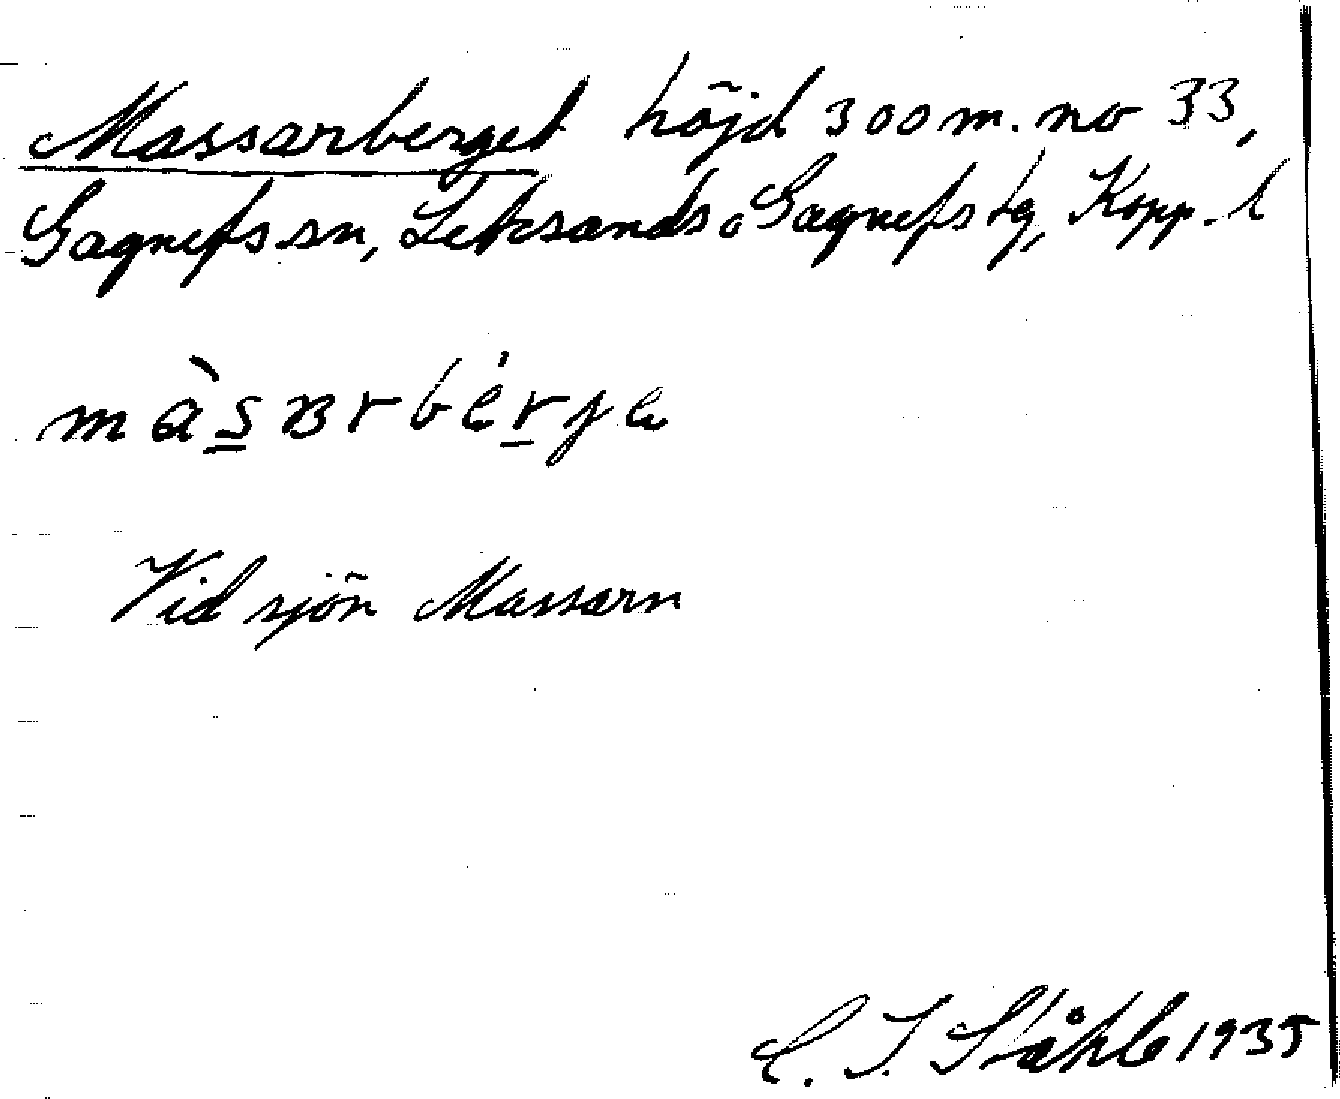 Massarberget höjd 300 m. no 33,
Gagnefs sn, Leksands o Gagnefs tg, Kopp. l
màs̳ʙrbér̲ɟe
Vid sjön Massarn
C. I. Ståhle 1935